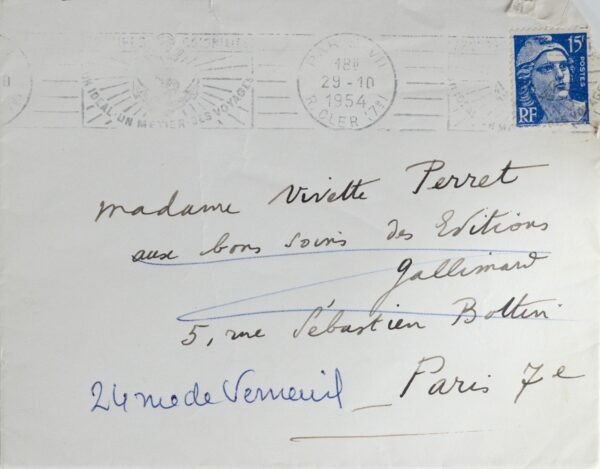 PARIS VII
18H
29-10
1954
R. CLER (7e)
UN IDEAL-UN METIER-DES VOYAGES
15F
POSTES
RF
madame Vivette Perret
aux bons soins des Editions
Gallimard
5, rue Sébastien Bottin
24 rue de Verneuil _ Paris 7e